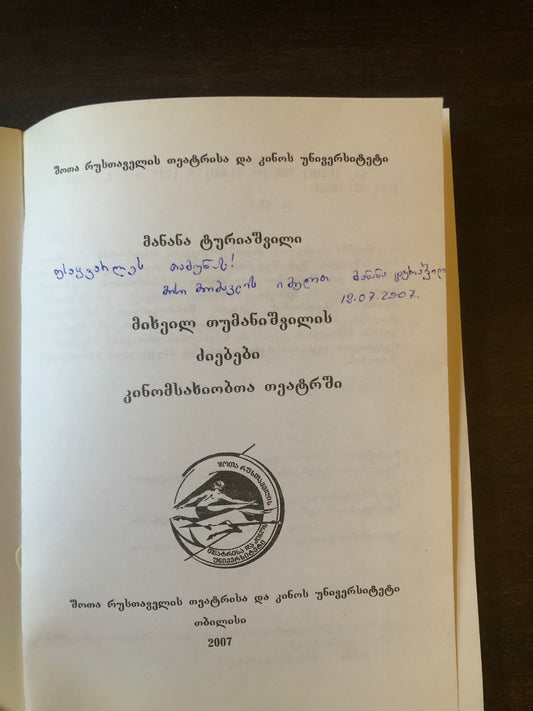 შოთა რუსთაველის თეატრისა და კინოს უნივერსიტეტი
მანანა ტურიაშვილი
საყვარელს თამუნას!
მისი მომავლის იმედით მანანა ტურიაშვილი
18.07.2007.
მიხეილ თუმანიშვილის
ძიებები
კინომსახიობთა თეატრში
შოთა რუსთაველის
თეატრისა და კინოს
უნივერსიტეტი
შოთა რუსთაველის თეატრისა და კინოს უნივერსიტეტი
თბილისი
2007